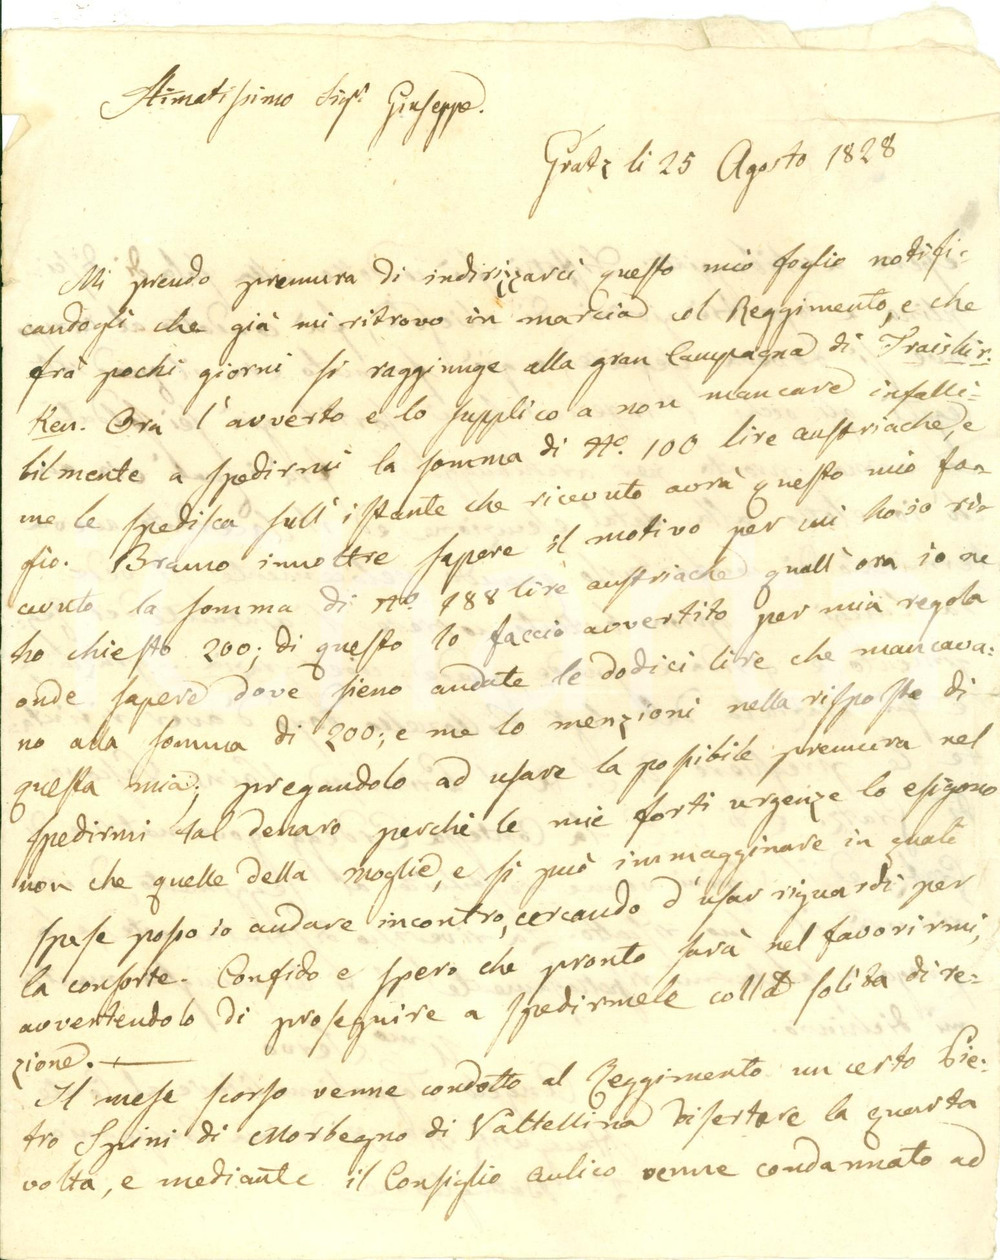 Stimatissimo Sigr. Giuseppe.
Gratz li 25 Agosto 1828
Mi prendo premura di indirizzarci questo mio foglio notifi-
candogli che già mi ritrovo in marcia col Reggimento, e che
frà pochi giorni si raggiunge alla gran Campagna di Traiskir-
ken. Ora l'avverto e lo supplico a non mancare infalli-
bilmente a spedirmi la somma di No. 100 lire austriache, e
me le spedisca sull'istante che ricevuto avrà questo mio fo-
glio. Bramo innoltre sapere il motivo per cui ho io ri-
cevuto la somma di No. 188 lire austriache quall'ora io ne
ho chiesto 200; di questo lo faccio avvertito per mia regola
onde sapere dove sieno andate le dodici lire che mancava-
no alla somma di 200; e me lo menzioni nella risposta di
questa mia; pregandolo ad usare la possibile premura nel
spedirmi tal denaro perchè le mie forti urgenze lo esigono
non che quelle della moglie, e si può immagginare in quali
spese posso io andare incontro, cercando d'usar riguardi per
la consorte. Confido e spero che pronto sarà nel favorirmi,
avvertendolo di proseguire a spedirmele colla solita dire-
zione.
Il mese scorso venne condotto al Reggimento un certo Pie-
tro Spini di Morbegno di Valtellina disertore la quarta
volta, e mediante il Consiglio aulico venne condannato ad